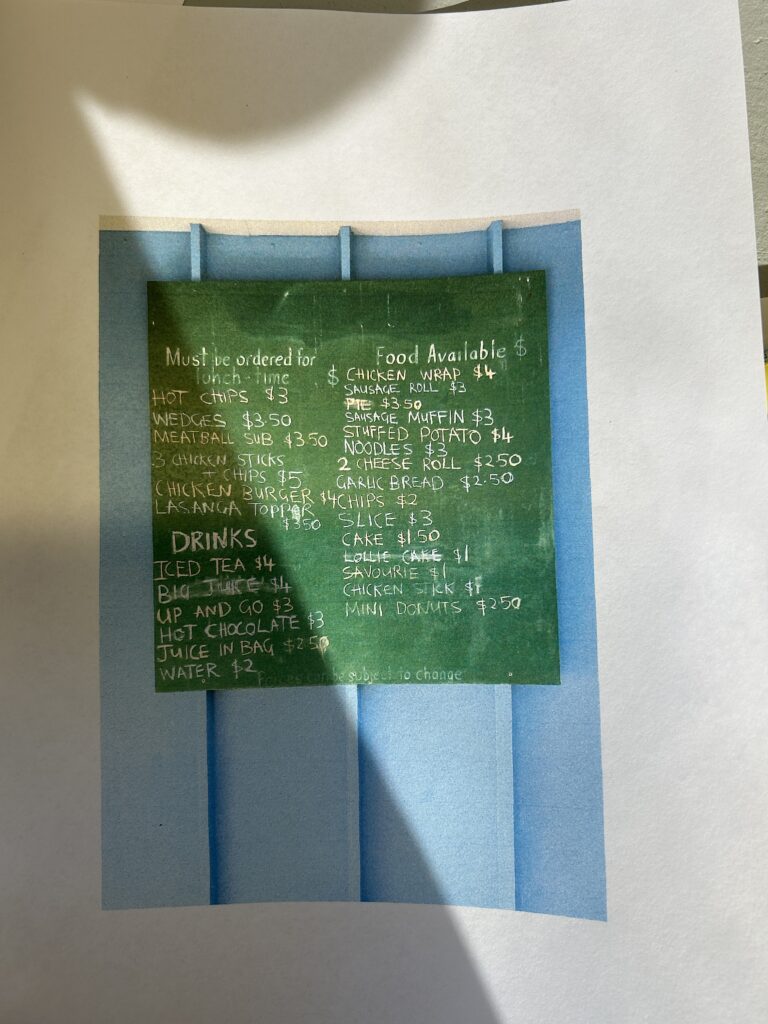 Must be ordered for
lunch-time $
HOT CHIPS $3
WEDGES $3.50
MEATBALL SUB $3.50
3 CHICKEN STICKS
+ CHIPS $5
CHICKEN BURGER $4
LASANGA TOPPER
$3.50
DRINKS
ICED TEA $4
BIG JUICE $4
UP AND GO $3
HOT CHOCOLATE $3
JUICE IN BAG $2.50
WATER $2
Food Available $
CHICKEN WRAP $4
SAUSAGE ROLL $3
PIE $3.50
SAUSAGE MUFFIN $3
STUFFED POTATO $4
NOODLES $3
2 CHEESE ROLL $2.50
GARLIC BREAD $2.50
CHIPS $2
SLICE $3
CAKE $1.50
LOLLIE CAKE $1
SAVOURIE $1
CHICKEN STICK $1
MINI DONUTS $2.50
Prices can be subject to change